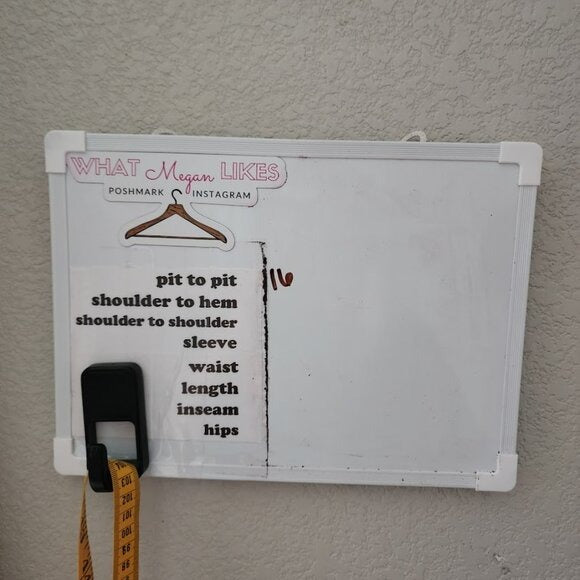 WHAT Megan LIKES
POSHMARK INSTAGRAM
pit to pit 16
shoulder to hem
shoulder to shoulder
sleeve
waist
length
inseam
hips
103
102
101
100
99
98